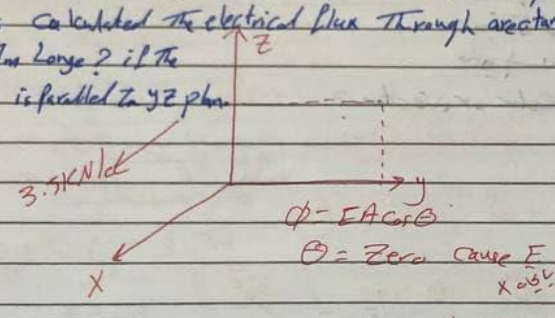 Calculated The electrical flux Through arectan
Z
Long? if The
is Parallel To yz plan
3.5KN/c
y
Φ = EA Cos Θ
Θ = Zero cause E
X
X